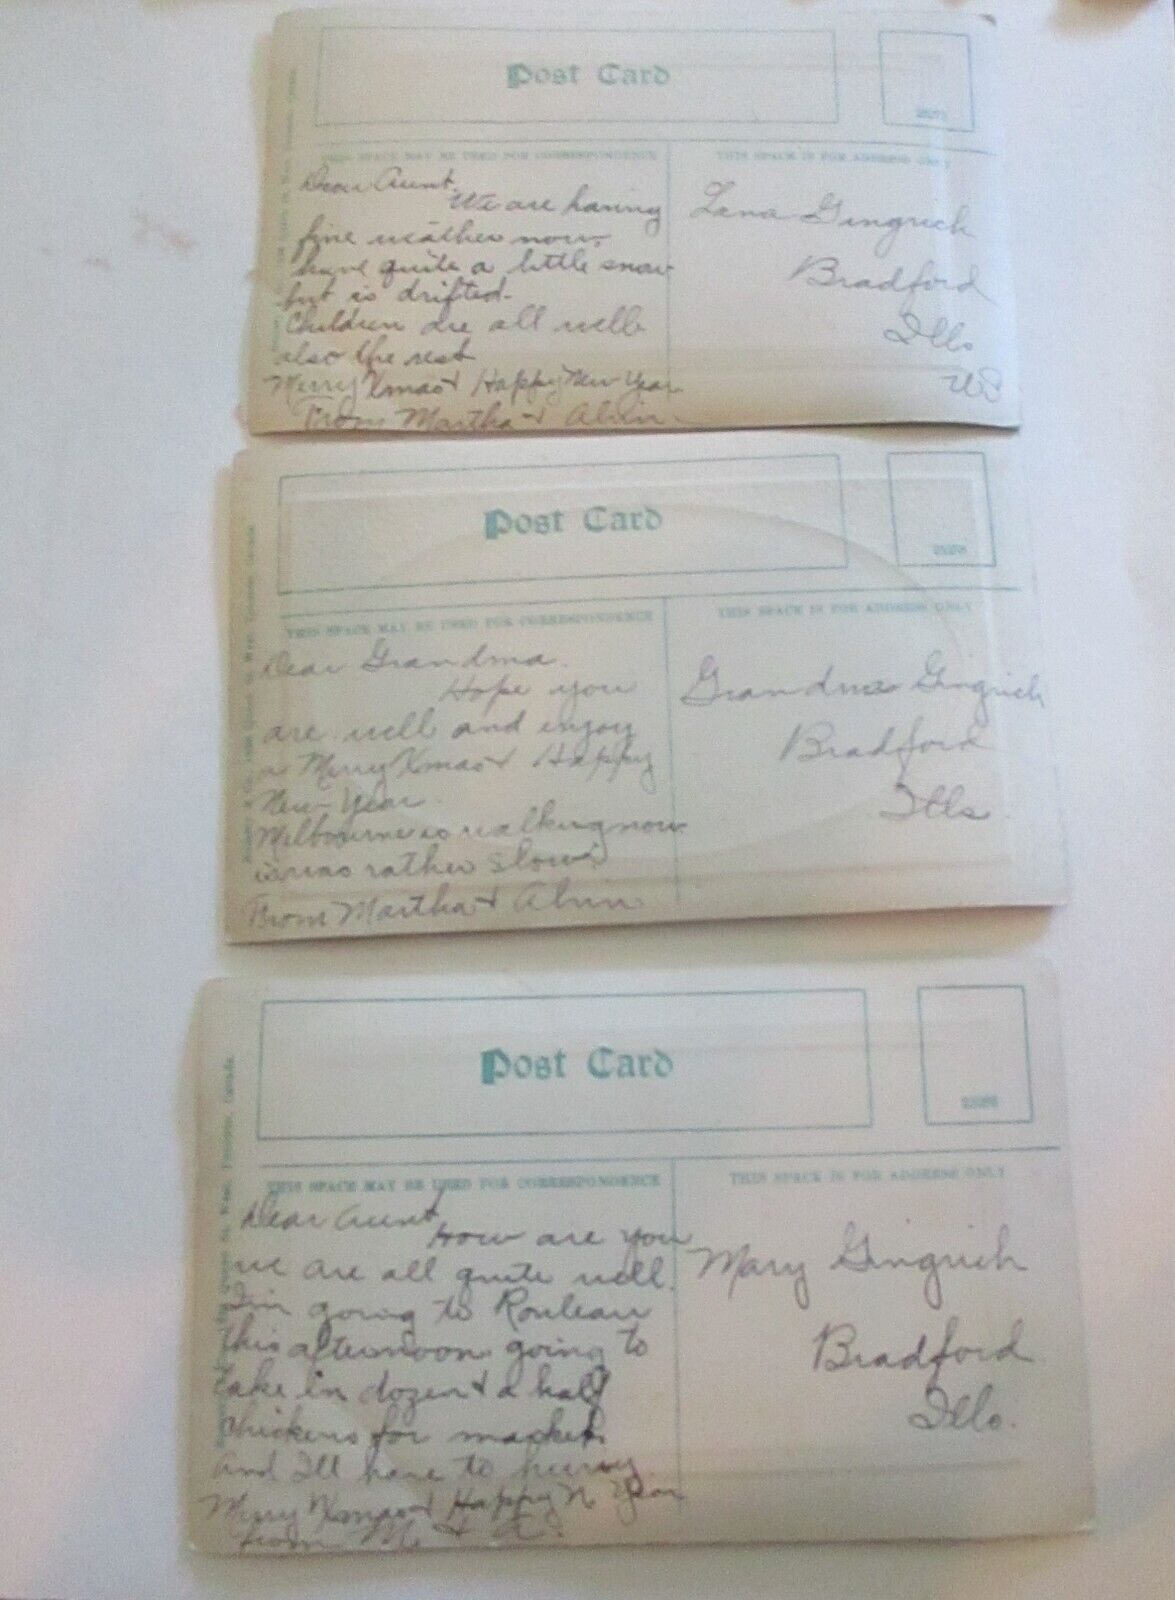 Post Card
THIS SPACE MAY BE USED FOR CORRESPONDENCE
THIS SPACE IS FOR ADDRESS ONLY
Dear Aunt.
We are having
fine weather now.
have quite a little snow
but is drifted.
Children are all well
also the rest
Merry Xmas & Happy New Year
From Martha & Alvin.
Lena Gingrich
Bradford
Ills
US
Post Card
THIS SPACE MAY BE USED FOR CORRESPONDENCE
THIS SPACE IS FOR ADDRESS ONLY
Dear Grandma.
Hope you
are well and enjoy
a Merry Xmas & Happy
New Year.
Melbourne is walking now
was rather slow.
From Martha & Alvin.
Grandma Gingrich
Bradford
Ills.
Post Card
THIS SPACE MAY BE USED FOR CORRESPONDENCE
THIS SPACE IS FOR ADDRESS ONLY
Dear Aunt
How are you
we are all quite well.
I'm going to Rouleau
this afternoon going to
take in dozen & a half
chickens for market.
And I'll have to hurry.
Merry Xmas & Happy N Year
from M. & A.
Mary Gingrich
Bradford
Ills.